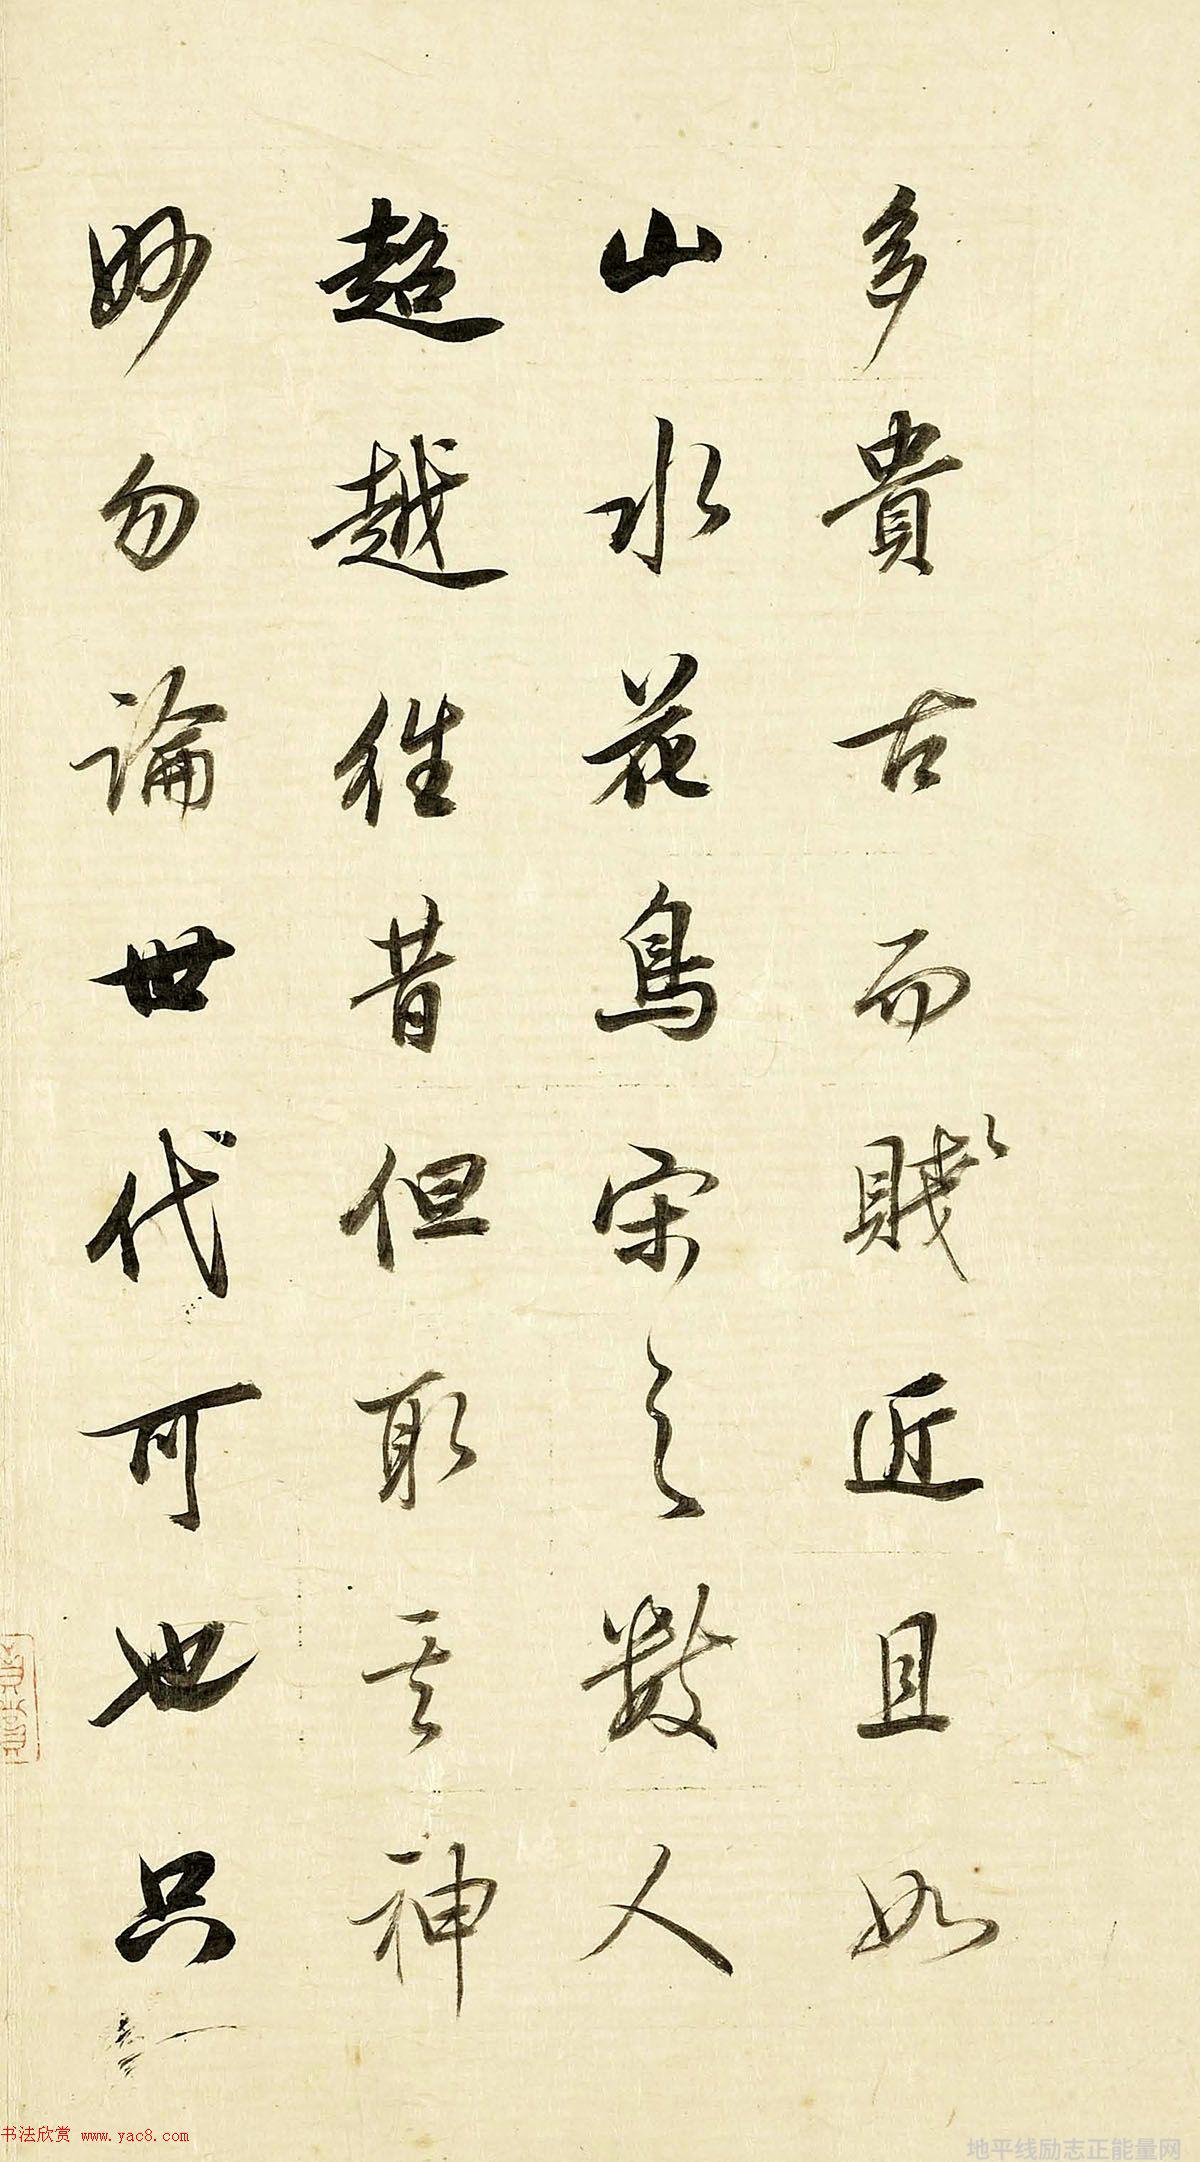 多貴古而賤近且如
山水花鳥宋之數人
超越往昔但取其神
妙勿論世代可也只
书法欣赏 www.yac8.com
地平线励志正能量网